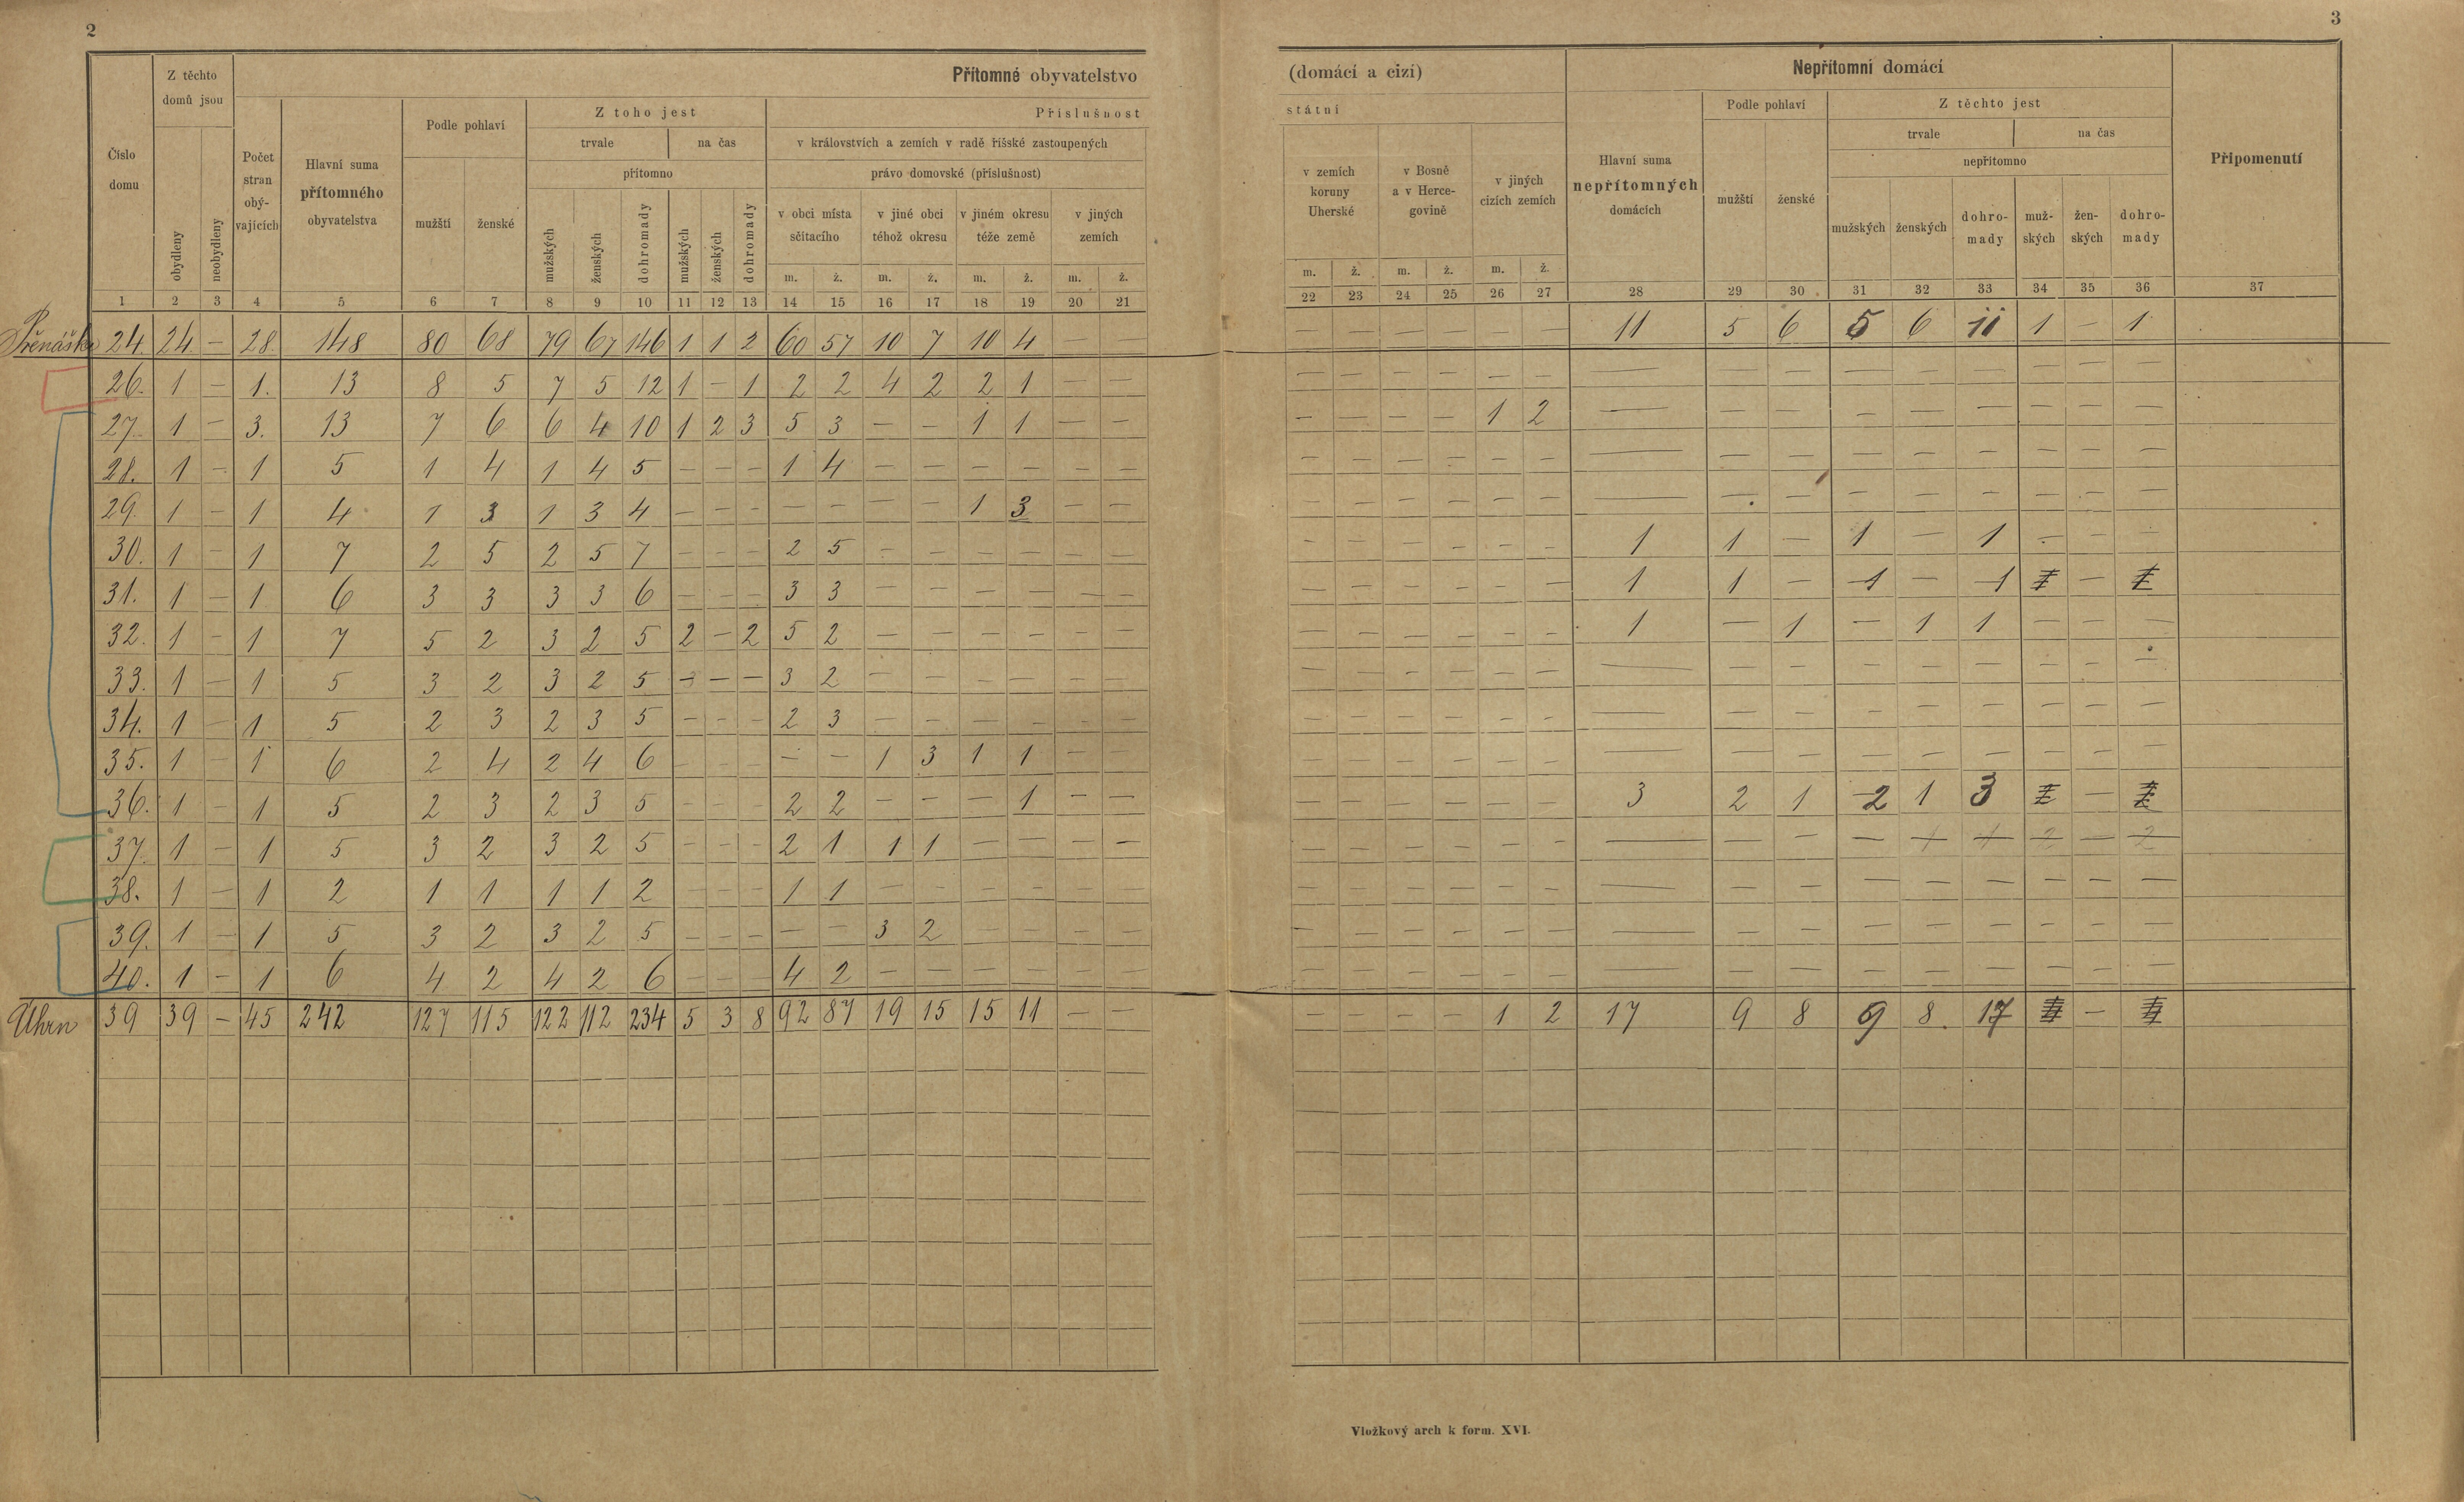 2
3
Přítomné obyvatelstvo
(domácí a cizí)
Nepřítomní domácí
Číslo domu
Z těchto domů jsou
obydleny
neobydleny
Počet stran obý-vajících
Hlavní suma přítomného obyvatelstva
Podle pohlaví
mužští
ženské
Z toho jest
trvale
na čas
přítomno
mužských
ženských
dohromady
mužských
ženských
dohromady
Příslušnost
státní
v královstvích a zemích v radě říšské zastoupených
právo domovské (příslušnost)
v obci místa sčítacího
v jiné obci téhož okresu
v jiném okresu téže země
v jiných zemích
m. ž. m. ž. m. ž. m. ž.
v zemích koruny Uherské
v Bosně a v Herce-govině
v jiných cizích zemích
m. ž. m. ž. m. ž.
Hlavní suma nepřítomných domácích
Podle pohlaví
mužští
ženské
Z těchto jest
trvale
na čas
nepřítomno
mužských
ženských
dohro-mady
muž-ských
žen-ských
dohro-mady
Připomenutí
1 2 3 4 5 6 7 8 9 10 11 12 13 14 15 16 17 18 19 20 21 22 23 24 25 26 27 28 29 30 31 32 33 34 35 36 37
Přenáška 24. 24 – 28. 148 80 68 79 67 146 1 1 2 60 57 10 7 10 4 – – – – – – – – 11 5 6 5 6 11 1 – 1
26. 1 – 1. 13 8 5 7 5 12 1 – 1 2 2 4 2 2 1 – – – – – – – – – – – – – – – – –
27. 1 – 3. 13 7 6 6 4 10 1 2 3 5 3 – – 1 1 – – – – – – 1 2 – – – – – – – – –
28. 1 – 1 5 1 4 1 4 5 – – – 1 4 – – – – – – – – – – – – – – – – – – – – –
29. 1 – 1 4 1 3 1 3 4 – – – – – – – 1 3 – – – – – – – – – – – – – – – – –
30. 1 – 1 7 2 5 2 5 7 – – – 2 5 – – – – – – – – – – – – 1 1 – 1 – 1 – – –
31. 1 – 1 6 3 3 3 3 6 – – – 3 3 – – – – – – – – – – – – 1 1 – 1 – 1 1 – 1
32. 1 – 1 7 5 2 3 2 5 2 – 2 5 2 – – – – – – – – – – – – 1 – 1 – 1 1 – – –
33. 1 – 1 5 3 2 3 2 5 – – – 3 2 – – – – – – – – – – – – – – – – – – – – –
34. 1 – 1 5 2 3 2 3 5 – – – 2 3 – – – – – – – – – – – – – – – – – – – – –
35. 1 – 1 6 2 4 2 4 6 – – – – – 1 3 1 1 – – – – – – – – – – – – – – – – –
36. 1 – 1 5 2 3 2 3 5 – – – 2 2 – – – 1 – – – – – – – – 3 2 1 2 1 3 2 – 2
37. 1 – 1 5 3 2 3 2 5 – – – 2 1 1 1 – – – – – – – – – – – – – – 1 1 2 – 2
38. 1 – 1 2 1 1 1 1 2 – – – 1 1 – – – – – – – – – – – – – – – – – – – – –
39. 1 – 1 5 3 2 3 2 5 – – – – – 3 2 – – – – – – – – – – – – – – – – – – –
40. 1 – 1 6 4 2 4 2 6 – – – 4 2 – – – – – – – – – – – – – – – – – – – – –
Úhrn 39 39 – 45 242 127 115 122 112 234 5 3 8 92 87 19 15 15 11 – – – – – – 1 2 17 9 8 9 8. 17 –
Vložkový arch k form. XVI.